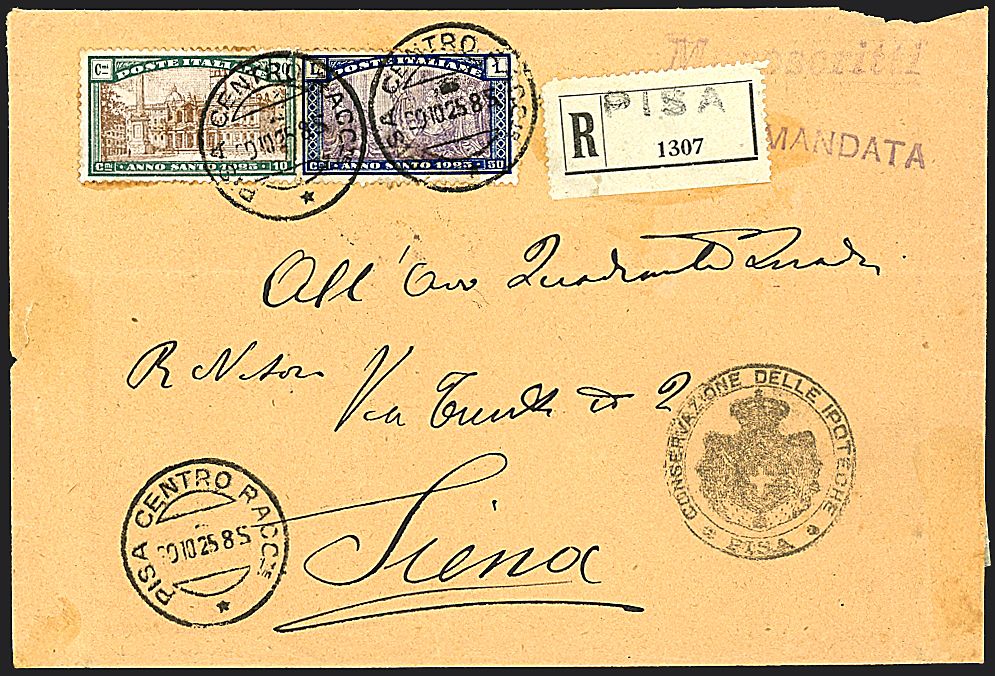 Manoscritti
Cmi POSTE ITALIANE
ANNO SANTO 1925
Cmi 10
L. POSTE ITALIANE L. 1
Cmi ANNO SANTO 1925 50
PISA CENTRO RACC
10 25 8 S
PISA CENTRO RACC
10 25 8 S
R PISA
1307
MANDATA
All' Avv Quadrante
R Notaro Via 2
Siena
CONSERVAZIONE DELLE IPOTECHE
PISA
PISA CENTRO RACC
10 25 8 S